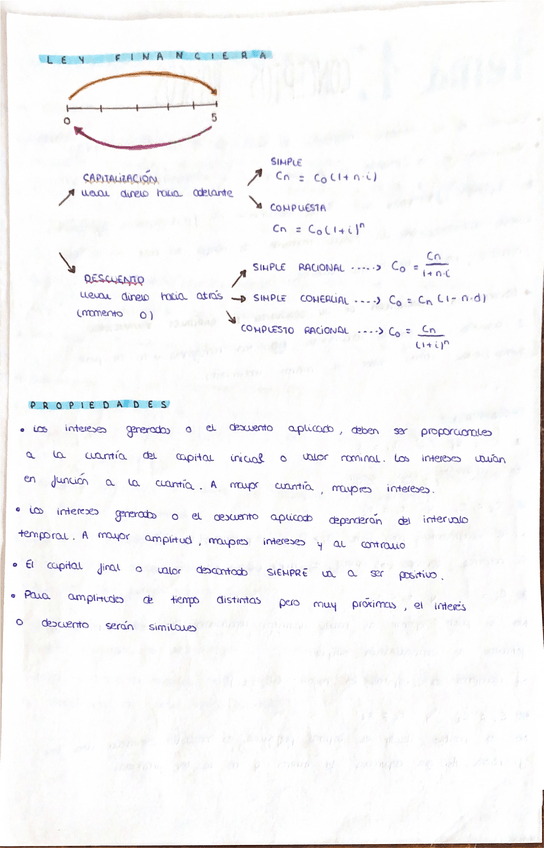 LEY FINANCIERA
0 5
CAPITALIZACIÓN
llevar dinero hacia adelante
SIMPLE
Cn = C0 (1+n·i)
COMPUESTA
Cn = C0 (1+i)^n
DESCUENTO
llevar dinero hacia atrás
(momento 0)
SIMPLE RACIONAL ----> C0 = Cn / 1+n·i
SIMPLE COMERCIAL ----> C0 = Cn (1-n·d)
COMPUESTO RACIONAL ----> C0 = Cn / (1+i)^n
PROPIEDADES
• Los intereses generados o el descuento aplicado, deben ser proporcionales
a la cuantía del capital inicial o valor nominal. Los intereses varían
en función a la cuantía. A mayor cuantía, mayores intereses.
• Los intereses generados o el descuento aplicado dependerán del intervalo
temporal. A mayor amplitud, mayores intereses y al contrario
• El capital final o valor descontado SIEMPRE va a ser positivo.
• Para amplitudes de tiempo distintas pero muy próximas, el interés
o descuento serán similares